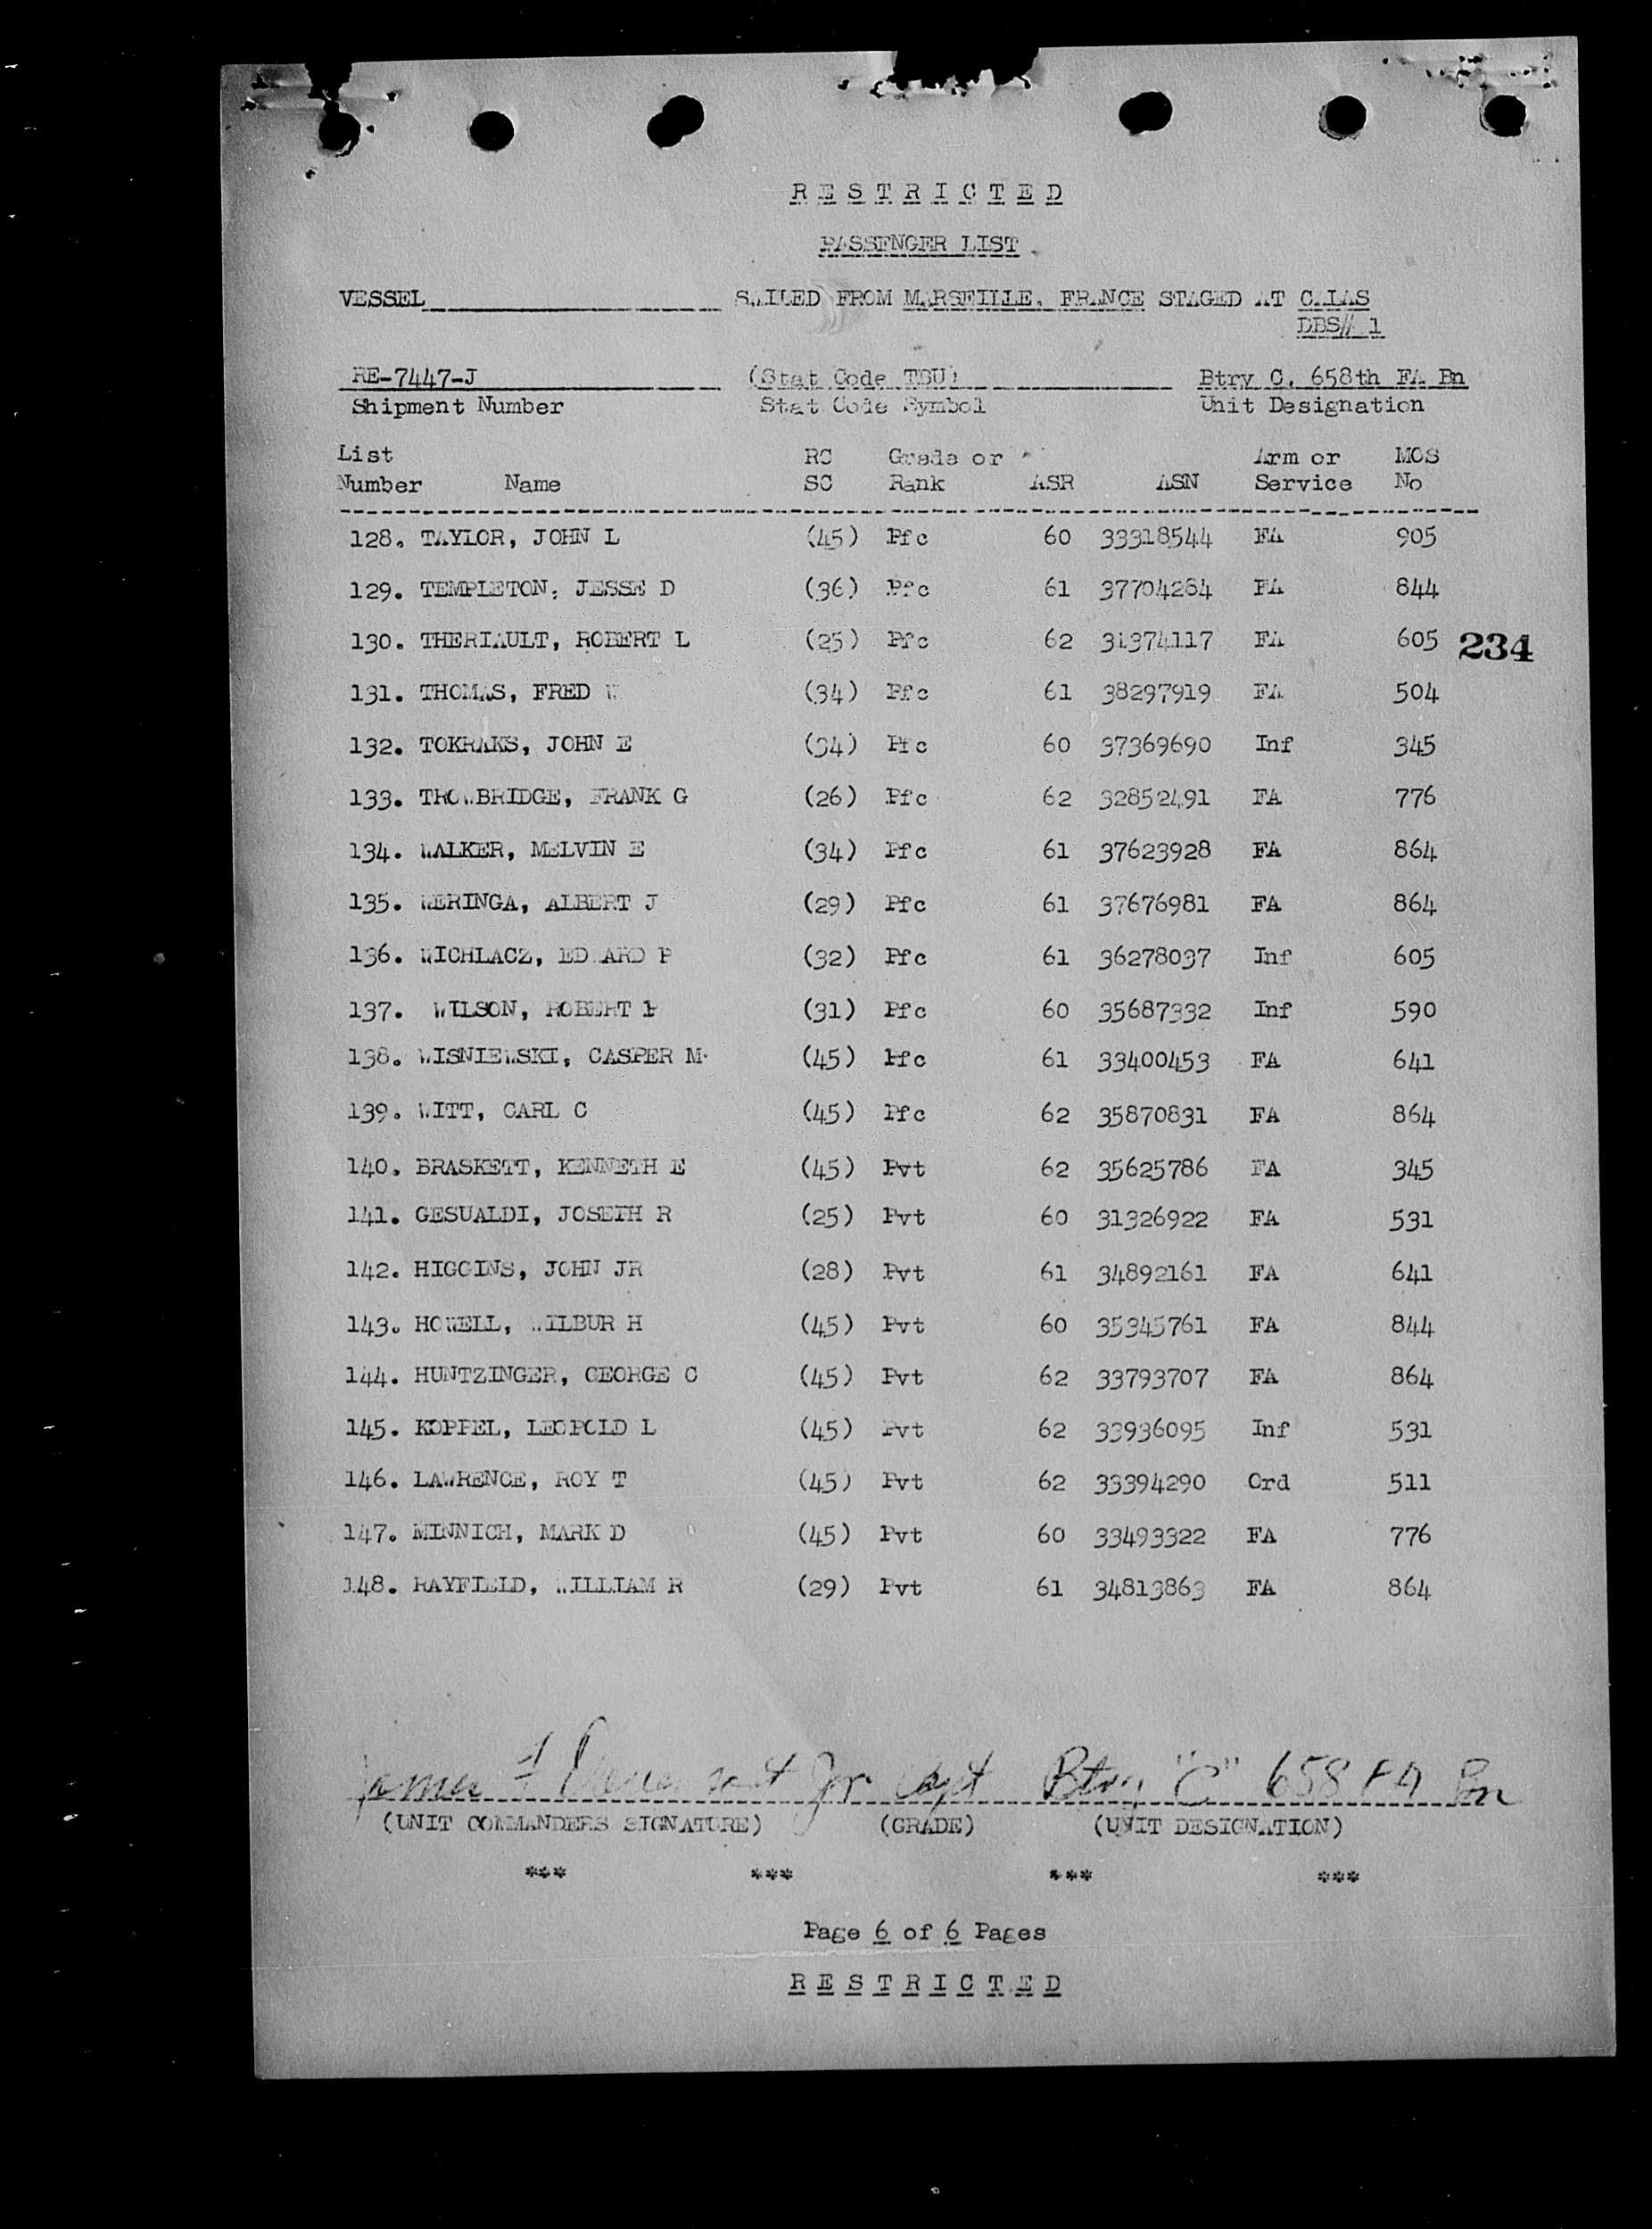 RESTRICTED
PASSENGER LIST
VESSEL SAILED FROM MARSEILLE, FRANCE STAGED AT CALAS
DBS# 1
RE-7447-J (Stat Code TBU) Btry C, 658th FA Bn
Shipment Number Stat Code Symbol Unit Designation
List RC Grade or Arm or MOS
Number Name SC Rank ASR ASN Service No
128. TAYLOR, JOHN L (45) Pfc 60 33318544 FA 905
129. TEMPLETON, JESSE D (36) Pfc 61 37704284 FA 844
130. THERIAULT, ROBERT L (25) Pfc 62 31374117 FA 605 234
131. THOMAS, FRED W (34) Pfc 61 38297919 FA 504
132. TOKRAKS, JOHN E (34) Pfc 60 37369690 Inf 345
133. TROWBRIDGE, FRANK G (26) Pfc 62 32852491 FA 776
134. WALKER, MELVIN E (34) Pfc 61 37623928 FA 864
135. WERINGA, ALBERT J (29) Pfc 61 37676981 FA 864
136. WICHLACZ, EDWARD P (32) Pfc 61 36278037 Inf 605
137. WILSON, ROBERT P (31) Pfc 60 35687332 Inf 590
138. WISNIEWSKI, CASPER M (45) Pfc 61 33400453 FA 641
139. WITT, CARL C (45) Pfc 62 35870831 FA 864
140. BRASKETT, KENNETH E (45) Pvt 62 35625786 FA 345
141. GESUALDI, JOSEPH R (25) Pvt 60 31326922 FA 531
142. HIGGINS, JOHN JR (28) Pvt 61 34892161 FA 641
143. HOWELL, WILBUR H (45) Pvt 60 35345761 FA 844
144. HUNTZINGER, GEORGE C (45) Pvt 62 33793707 FA 864
145. KOPPEL, LEOPOLD L (45) Pvt 62 33936095 Inf 531
146. LAWRENCE, ROY T (45) Pvt 62 33394290 Ord 511
147. MINNICH, MARK D (45) Pvt 60 33493322 FA 776
148. RAYFIELD, WILLIAM R (29) Pvt 61 34813863 FA 864
James F Jr Capt Btry "C" 658 FA Bn
(UNIT COMMANDERS SIGNATURE) (GRADE) (UNIT DESIGNATION)
*** *** *** ***
Page 6 of 6 Pages
RESTRICTED